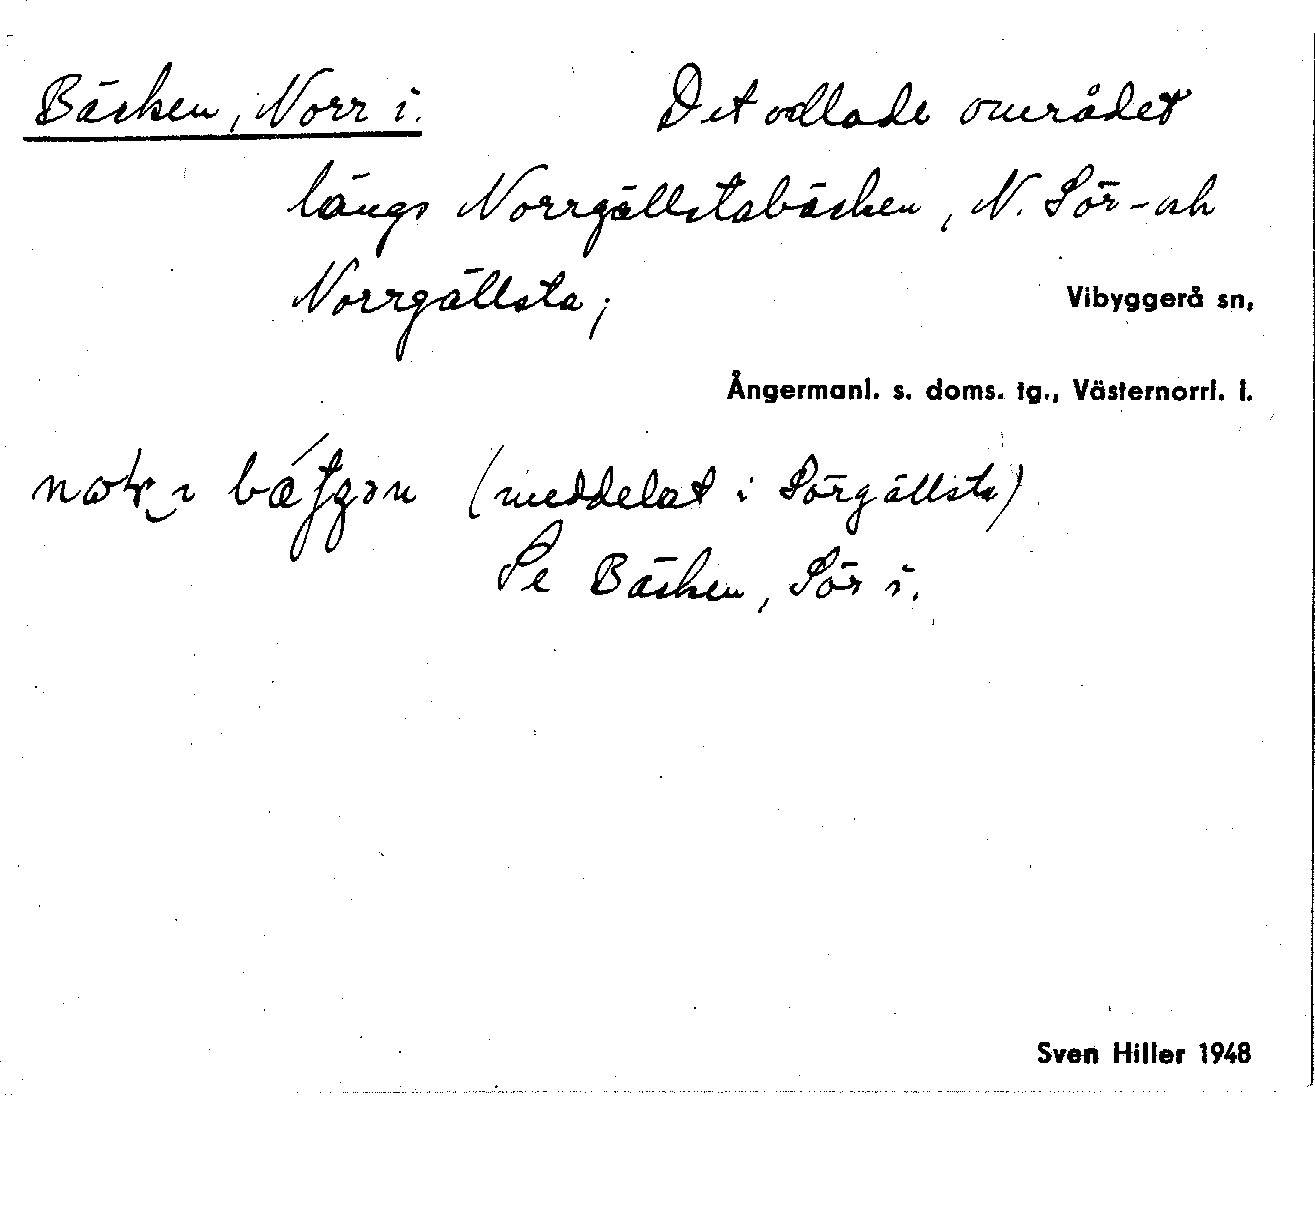 Bäcken, Norr i. Det odlade området
längs Norrgällstabäcken, N. Sör- och
Norrgällsta; Vibyggerå sn,
Ångermanl. s. doms. tg., Västernorrl. l.
(meddelat i Sörgällsta)
Se Bäcken, Sör i.
Sven Hiller 1948